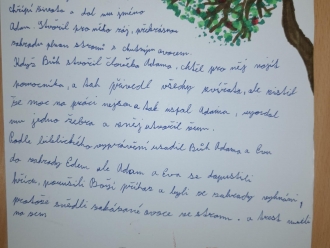 chřípí života a dal mu jméno
Adam. Stvořil pro něho ráj, překrásnou
zahradu plnou stromů s chutným ovocem.
Když Bůh stvořil člověka Adama, chtěl pro něj najít
pomocníka, a tak přivedl všechny zvířata, ale zjistil
že moc na práci nejsou a tak uspal Adama, vyndal
mu jedno žebro a z něj utvořil ženu.
Podle biblického vyprávění usadil Bůh Adama a Evu
do zahrady Eden ale Adam a Eva se dopustili
hříchu, porušili Boží příkaz a byli ze zahrady vyhnáni,
protože snědli zakázané ovoce ze stromu. a